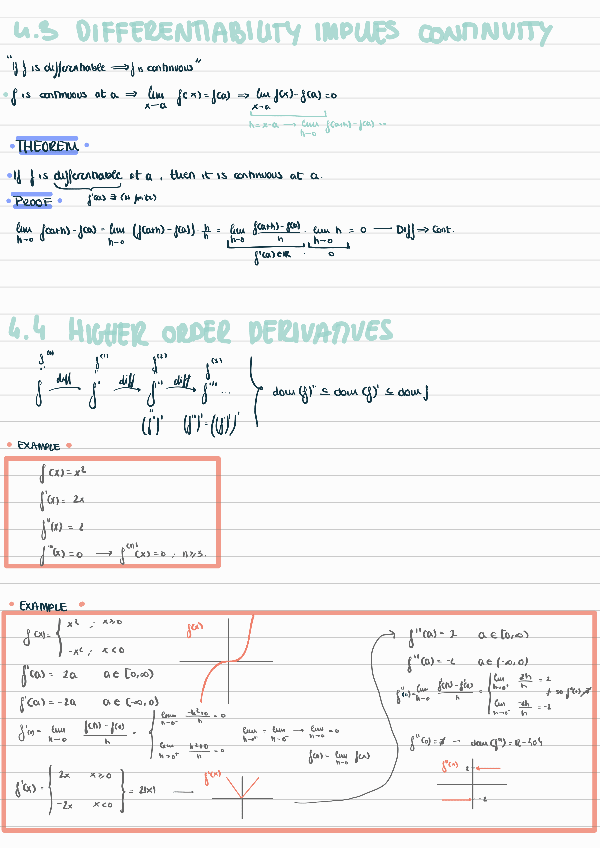 4.3 DIFFERENTIABILITY IMPLIES CONTINUITY
"If f is differentiable ⟹ f is continuous"
• f is continuous at a ⟹ lim x→a f(x) = f(a) ⟹ lim x→a f(x) - f(a) = 0
h = x-a → lim h→0 f(a+h) - f(a) =
• THEOREM •
• If f is differentiable at a, then it is continuous at a.
f'(a) ∃ (is finite)
• PROOF •
lim h→0 f(a+h) - f(a) = lim h→0 (f(a+h) - f(a)) · h/h = lim h→0 (f(a+h) - f(a))/h · lim h→0 h = 0 — Diff → Cont.
f'(a) ∈ ℝ · 0
4.4 HIGHER ORDER DERIVATIVES
f⁽⁰⁾ f⁽¹⁾ f⁽²⁾ f⁽³⁾
f diff→ f' diff→ f'' diff→ f''' ...
dom (f)'' ⊆ dom (f)' ⊆ dom f
(f')' (f'')' = ((f')')'
• EXAMPLE •
f(x) = x²
f'(x) = 2x
f''(x) = 2
f'''(x) = 0 → f⁽ⁿ⁾(x) = 0 , n ≥ 3
• EXAMPLE •
f(x) = { x² , x ≥ 0
-x² , x < 0
f(x)
f'(a) = 2a a ∈ [0,∞)
f'(a) = -2a a ∈ (-∞,0)
f'(0) = lim h→0 (f(h) - f(0))/h = { lim h→0⁻ (-h²+0)/h = 0
lim h→0⁺ (h²+0)/h = 0
lim h→0⁺ = lim h→0⁻ → lim h→0 = 0
f(0) = lim h→0 f(x)
f'(x) = { 2x x ≥ 0
-2x x < 0 } = 2|x| —
f'(x)
f''(a) = 2 a ∈ [0,∞)
f''(a) = -2 a ∈ (-∞,0)
f''(0) = lim h→0 (f'(h) - f'(0))/h = { lim h→0⁺ 2h/h = 2
≠ so f''(0) ∄
lim h→0⁻ -2h/h = -2
f''(0) = ∄ → dom(f'') = ℝ - {0}
f''(x)
2
-2